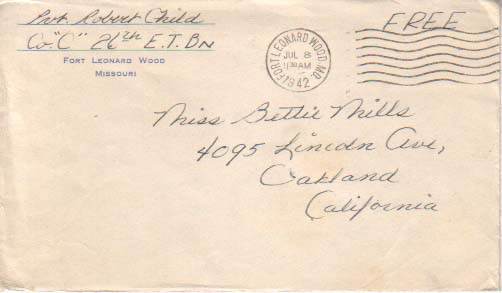 Pvt. Robert Child
Co. "C" 26th E.T. Bn
FORT LEONARD WOOD
MISSOURI
FREE
FORT LEONARD WOOD, MO.
JUL 8
11 30 AM
1942
Miss Bettie Mills
4095 Lincoln Ave,
Oakland
California